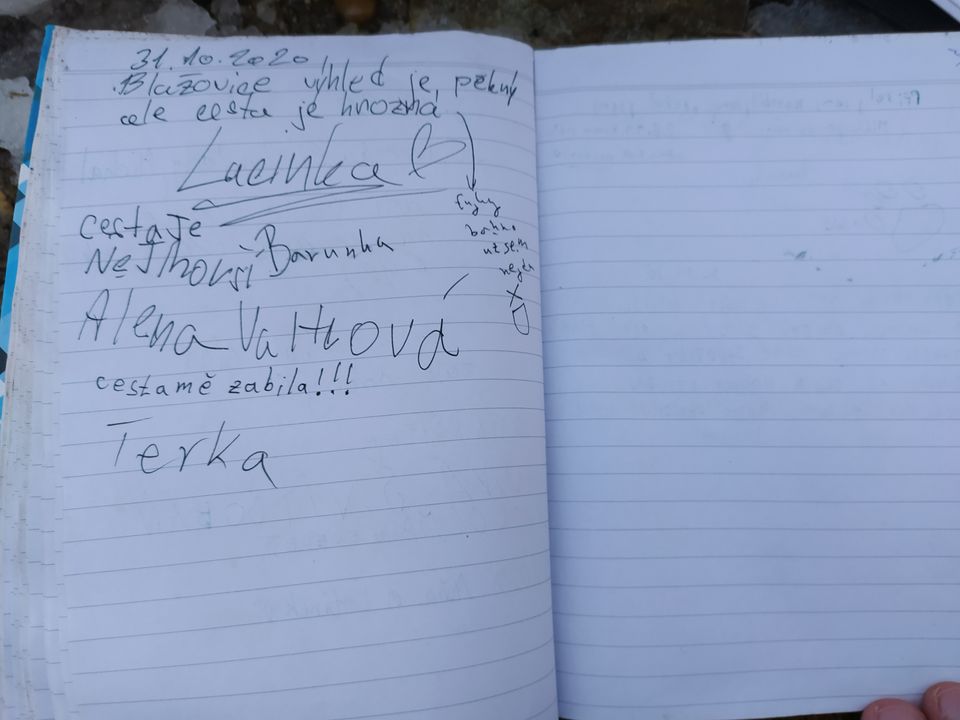 31.10.2020
Blažovice výhled je pěkný
ale cesta je hrozná
Lucinka
fujky
bahno
už sem
nejdu
cesta je
Nejhorší Barunka
Alena Vaťková
cesta mě zabila!!!
Terka